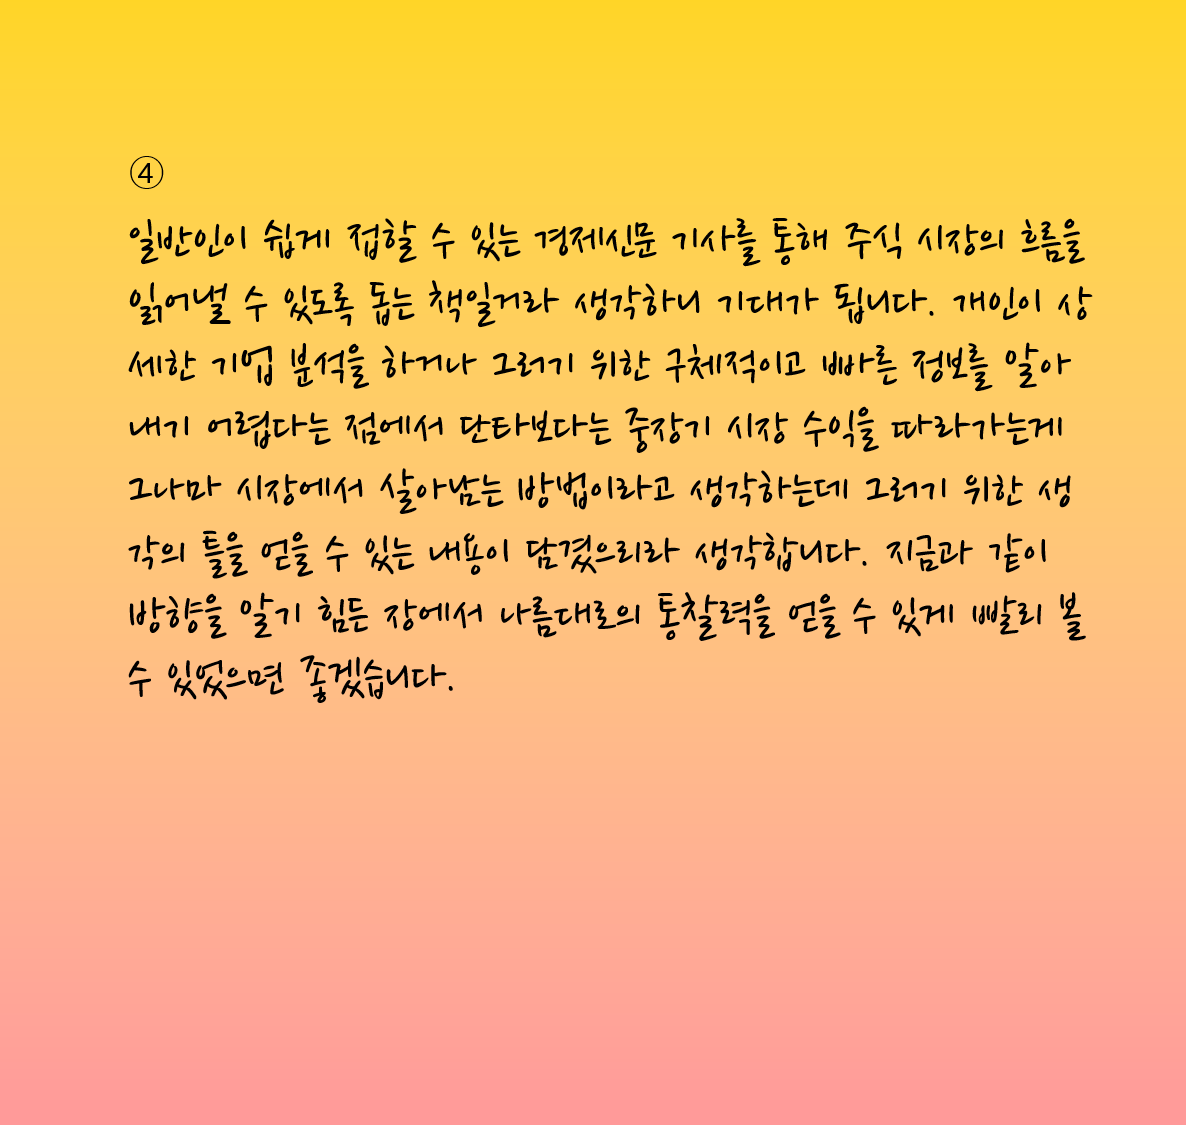 ④
일반인이 쉽게 접할 수 있는 경제신문 기사를 통해 주식 시장의 흐름을
읽어낼 수 있도록 돕는 책일거라 생각하니 기대가 됩니다. 개인이 상
세한 기업 분석을 하거나 그러기 위한 구체적이고 빠른 정보를 알아
내기 어렵다는 점에서 단타보다는 중장기 시장 수익을 따라가는게
그나마 시장에서 살아남는 방법이라고 생각하는데 그러기 위한 생
각의 틀을 얻을 수 있는 내용이 담겼으리라 생각합니다. 지금과 같이
방향을 알기 힘든 장에서 나름대로의 통찰력을 얻을 수 있게 빨리 볼
수 있었으면 좋겠습니다.